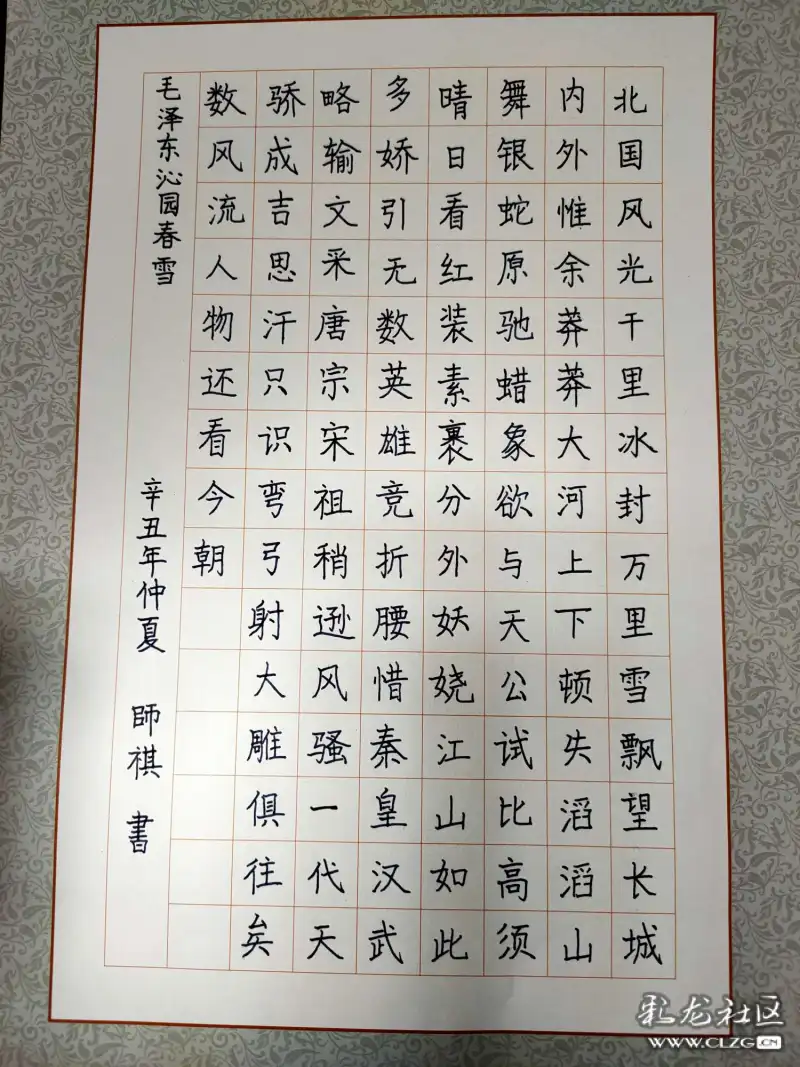 北国风光千里冰封万里雪飘望长城
内外惟余莽莽大河上下顿失滔滔山
舞银蛇原驰蜡象欲与天公试比高须
晴日看红装素裹分外妖娆江山如此
多娇引无数英雄竞折腰惜秦皇汉武
略输文采唐宗宋祖稍逊风骚一代天
骄成吉思汗只识弯弓射大雕俱往矣
数风流人物还看今朝
毛泽东沁园春雪 辛丑年仲夏 師祺 書
彩龙社区
WWW.CLZG.CN